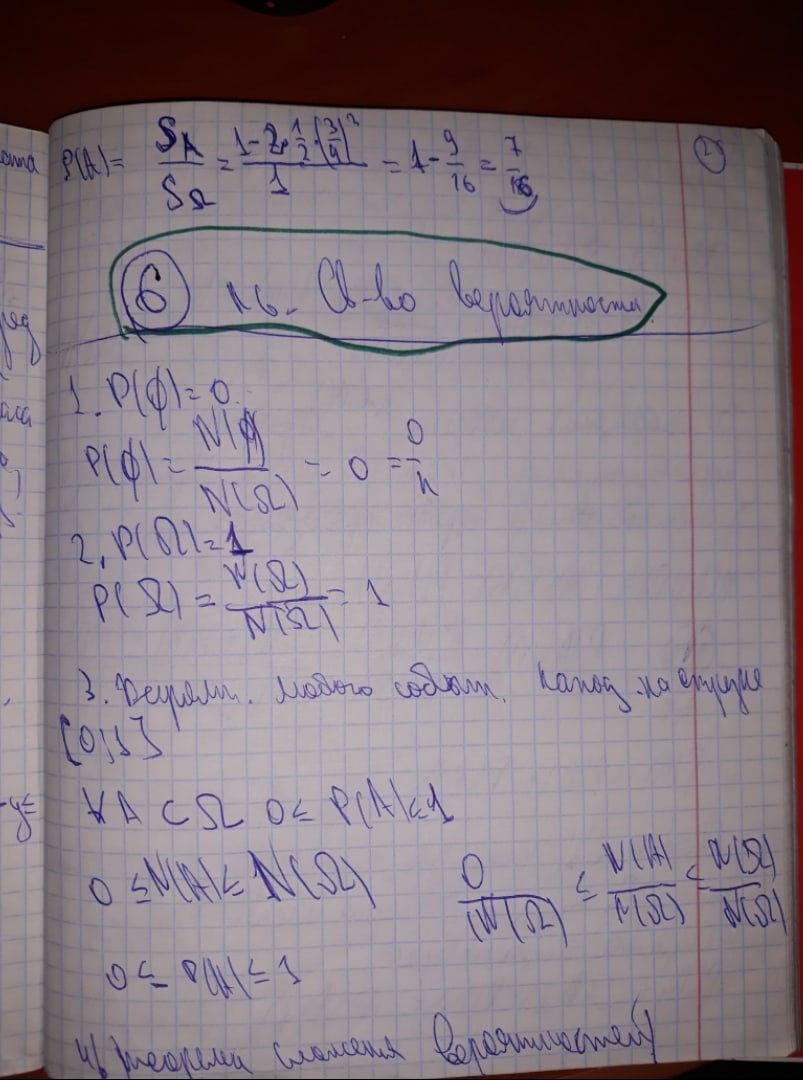 P(A) = S_A / S_Ω = (1 - 2 · 1/2 · (3/4)²) / 1 = 1 - 9/16 = 7/16
2
6 №6. Св-во вероятности
1. P(∅) = 0.
P(∅) = N(∅) / N(Ω) = 0 = 0/n
2. P(Ω) = 1
P(Ω) = N(Ω) / N(Ω) = 1
3. Вероятн. любого событ. наход. на отрезке
[0;1]
∀A ⊂ Ω 0 ≤ P(A) ≤ 1
0 ≤ N(A) ≤ N(Ω) 0 / N(Ω) ≤ N(A) / N(Ω) ≤ N(Ω) / N(Ω)
0 ≤ P(A) ≤ 1
4) теорема сложения вероятностей)